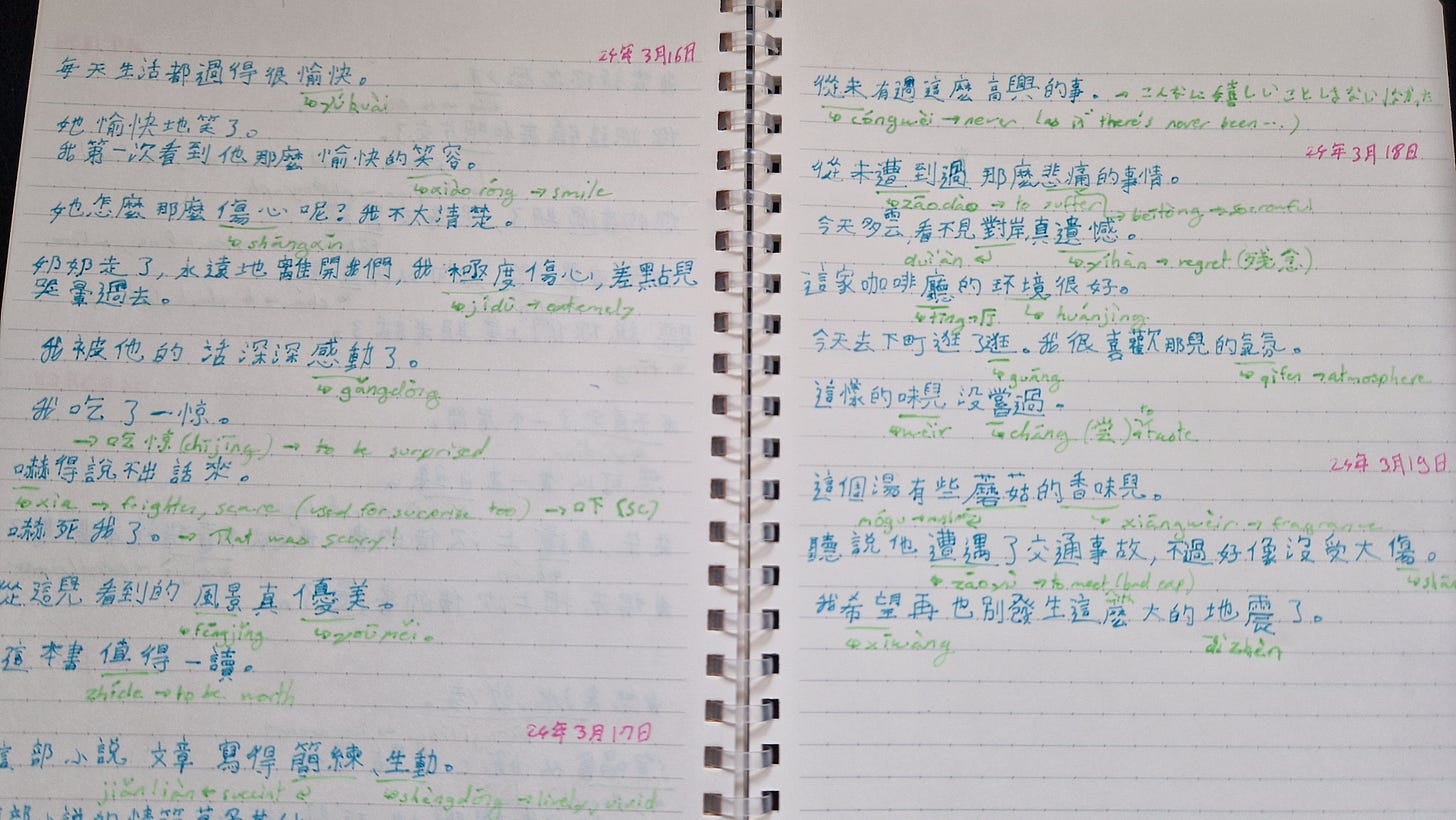 24年3月16日
每天生活都過得很愉快。
↳yúkuài
她愉快地笑了。
我第一次看到他那麼愉快的笑容。
↳xiào róng → smile
她怎麼那麼傷心呢？我不太清楚。
↳shāngxīn
奶奶走了，永遠地離開我們，我極度傷心，差點兒
哭暈過去。
↳jídù → extremely
我被他的話深深感動了。
↳gǎngdòng
我吃了一惊。
→ 吃惊(chījīng) → to be surprised
嚇得說不出話來。
↳xia → frighten, scare (used for surprise too) → 吓 (SC)
嚇死我了。→ That was scary!
從這兒看到的風景真優美。
↳fēngjǐng ↳yōuměi。
這本書值得一讀。
zhíde → to be worth
24年3月17日
這部小說文章寫得簡練、生動。
jiǎnliàn → succint ↲ ↳shēngdòng → lively, vivid
從來有過這麼高興的事。→ こんなに嬉しいこと
↳cóngwèi → never (as in "there's never been...")
24年3月18日
從未遭到過那麼悲痛的事情。
↳zāodào → to suffer ↳bēitòng → sorrowful
今天多雲，看不見對岸真遺憾。
duì'àn ↲ ↳yíhàn → regret (残念)
這家咖啡廳的环境很好。
↳tīng→厅 ↳huánjìng
今天去下町逛了逛。我很喜歡那兒的氣氛。
↳guàng ↳qìfen → atmosphere
這樣的味兒沒嘗過。
↳wèir ↳cháng (尝) → to taste
24年3月19日
這個湯有些蘑菇的香味兒。
mógu ↳xiāngwèir → fragrance
聽說他遭遇了交通事故，不過好像沒受大傷。
↳zāoyù → to meet (bad exp)
我希望再也別發生這麼大的地震了。
↳xīwàng dìzhèn